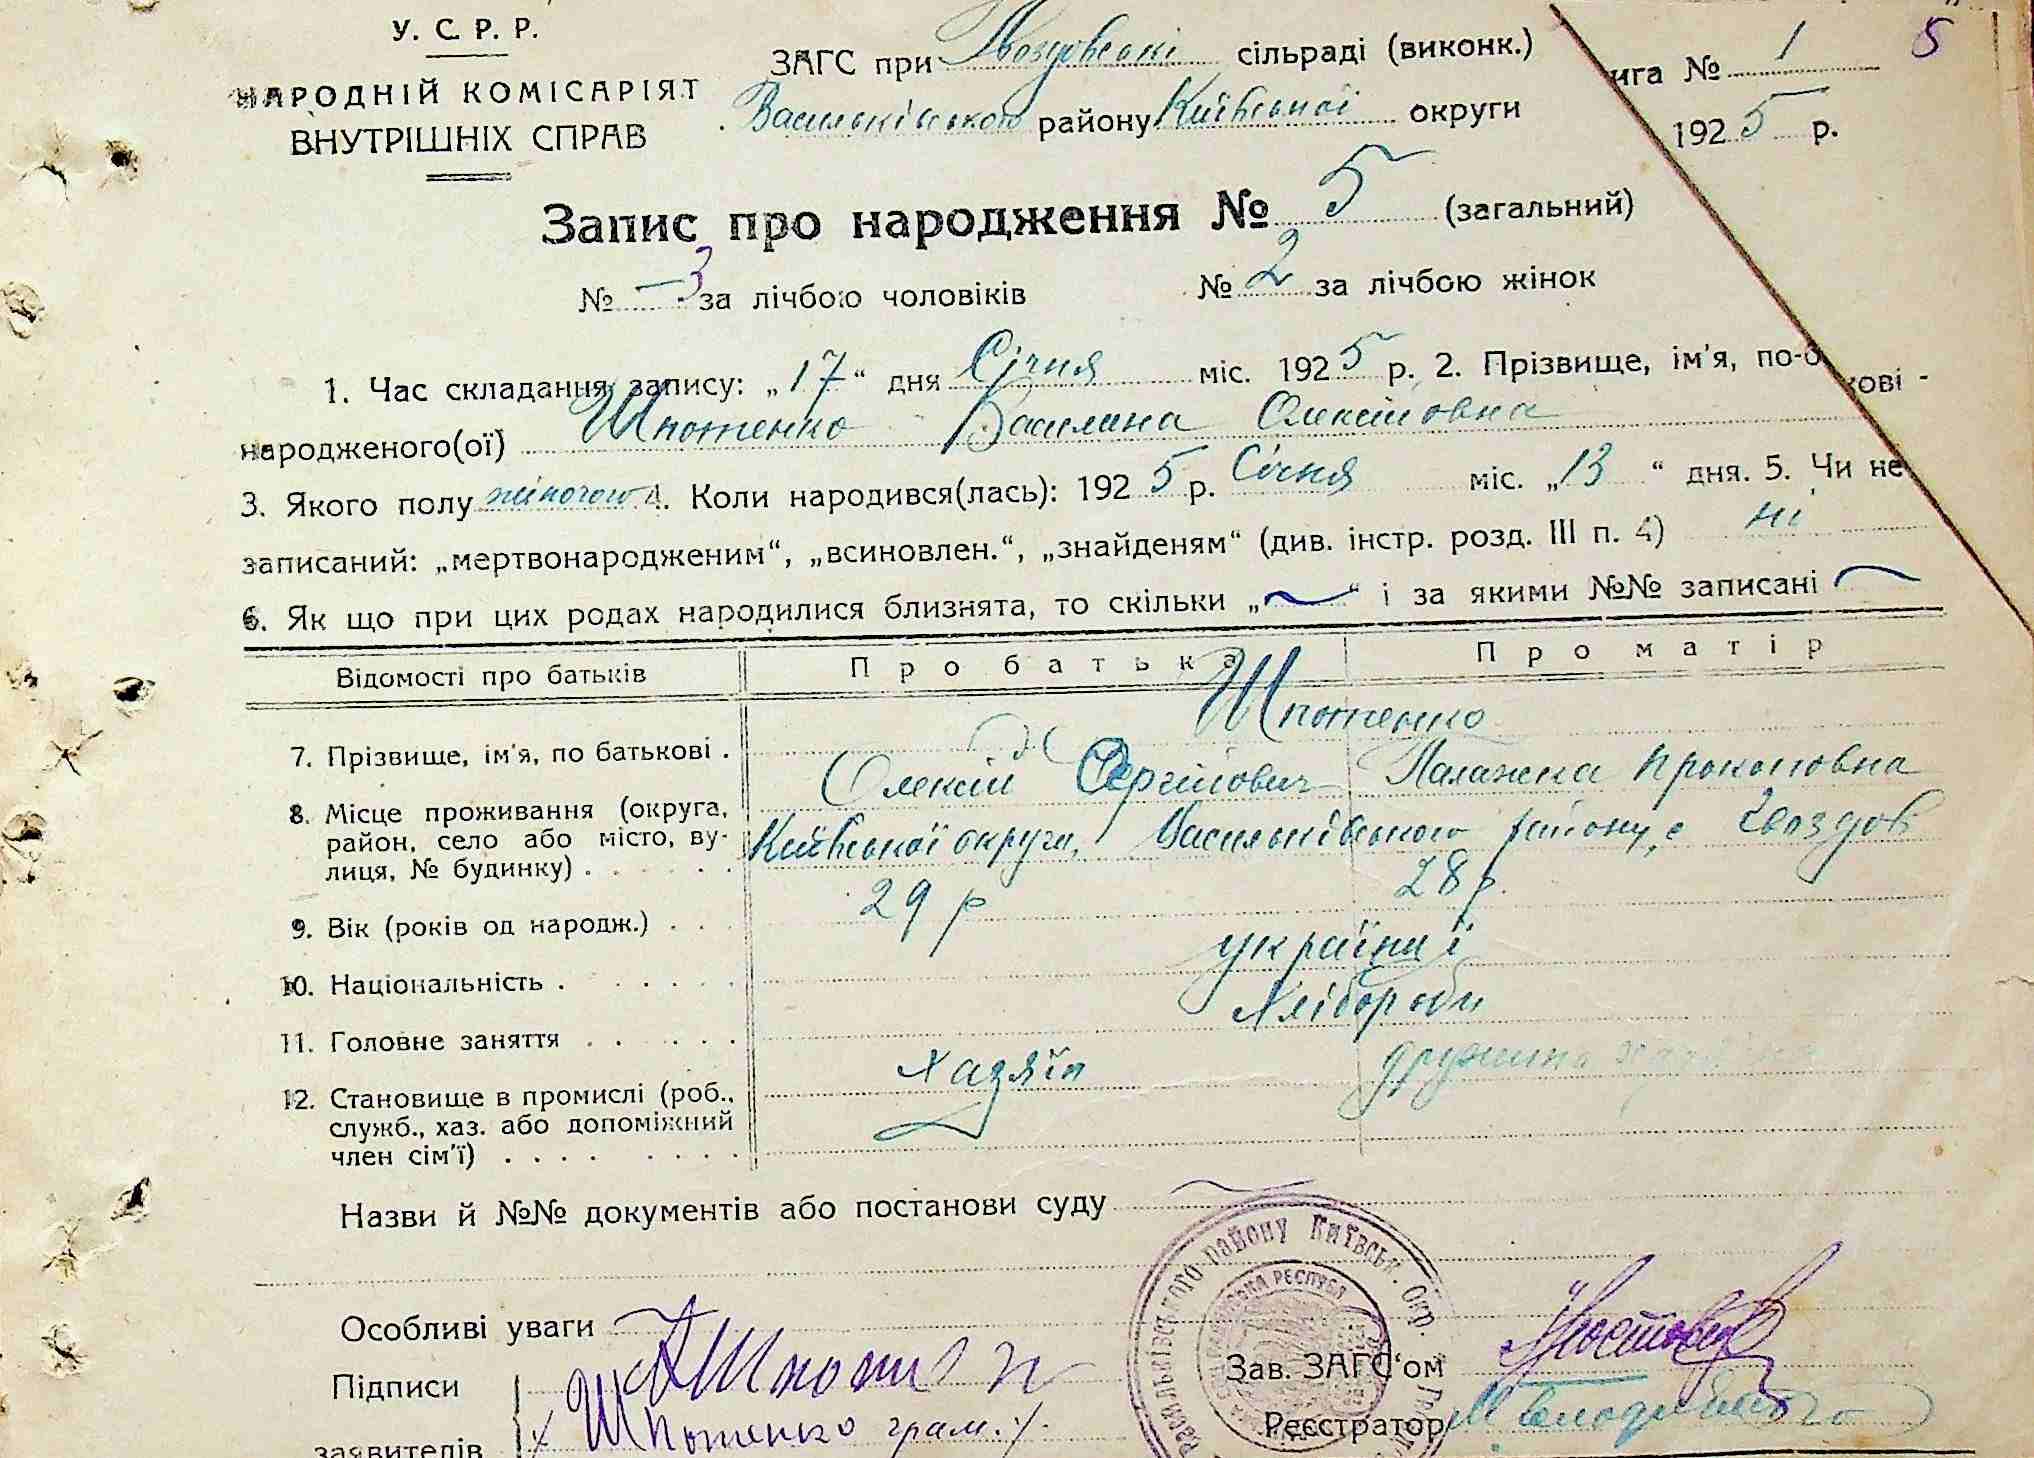 У. С. Р. Р.
НАРОДНІЙ КОМІСАРІЯТ
ВНУТРІШНІХ СПРАВ
ЗАГС при Гвоздовські сільраді (виконк.)
Васильківського району Київської округи
ига № 1 5
1925 р.
Запис про народження № 5 (загальний)
№ 3 за лічбою чоловіків № 2 за лічбою жінок
1. Час складання запису: „17“ дня Січня міс. 1925 р. 2. Прізвище, ім'я, по-б
кові -
народженого(ої) Шпотенко Василина Олексіївна
3. Якого полу жіночого 4. Коли народився(лась): 1925 р. Січня міс. „13“ дня. 5. Чи не
записаний: „мертвонародженим“, „всиновлен.“, „знайденям“ (див. інстр. розд. III п. 4) ні
6. Як що при цих родах народилися близнята, то скільки „ “ і за якими №№ записані
Відомості про батьків Про батька Про матір
7. Прізвище, ім'я, по батькові . Шпотенко
Олексій Сергійович Палажка Прокоповна
8. Місце проживання (округа,
район, село або місто, ву-
лиця, № будинку) . Київської округи, Васильківського району, с Гвоздов
9. Вік (років од народж.) . . . 29 р 28 р.
10. Національність . українці
11. Головне заняття хлібороби
12. Становище в промислі (роб.,
служб., хаз. або допоміжний
член сім'ї) хазяїн дружина
Назви й №№ документів або постанови суду
Особливі уваги
Підписи
заявителів Шпотенко грам.
Зав. ЗАГС'ом
Реєстратор
Васильківського району Київськ. Окр.